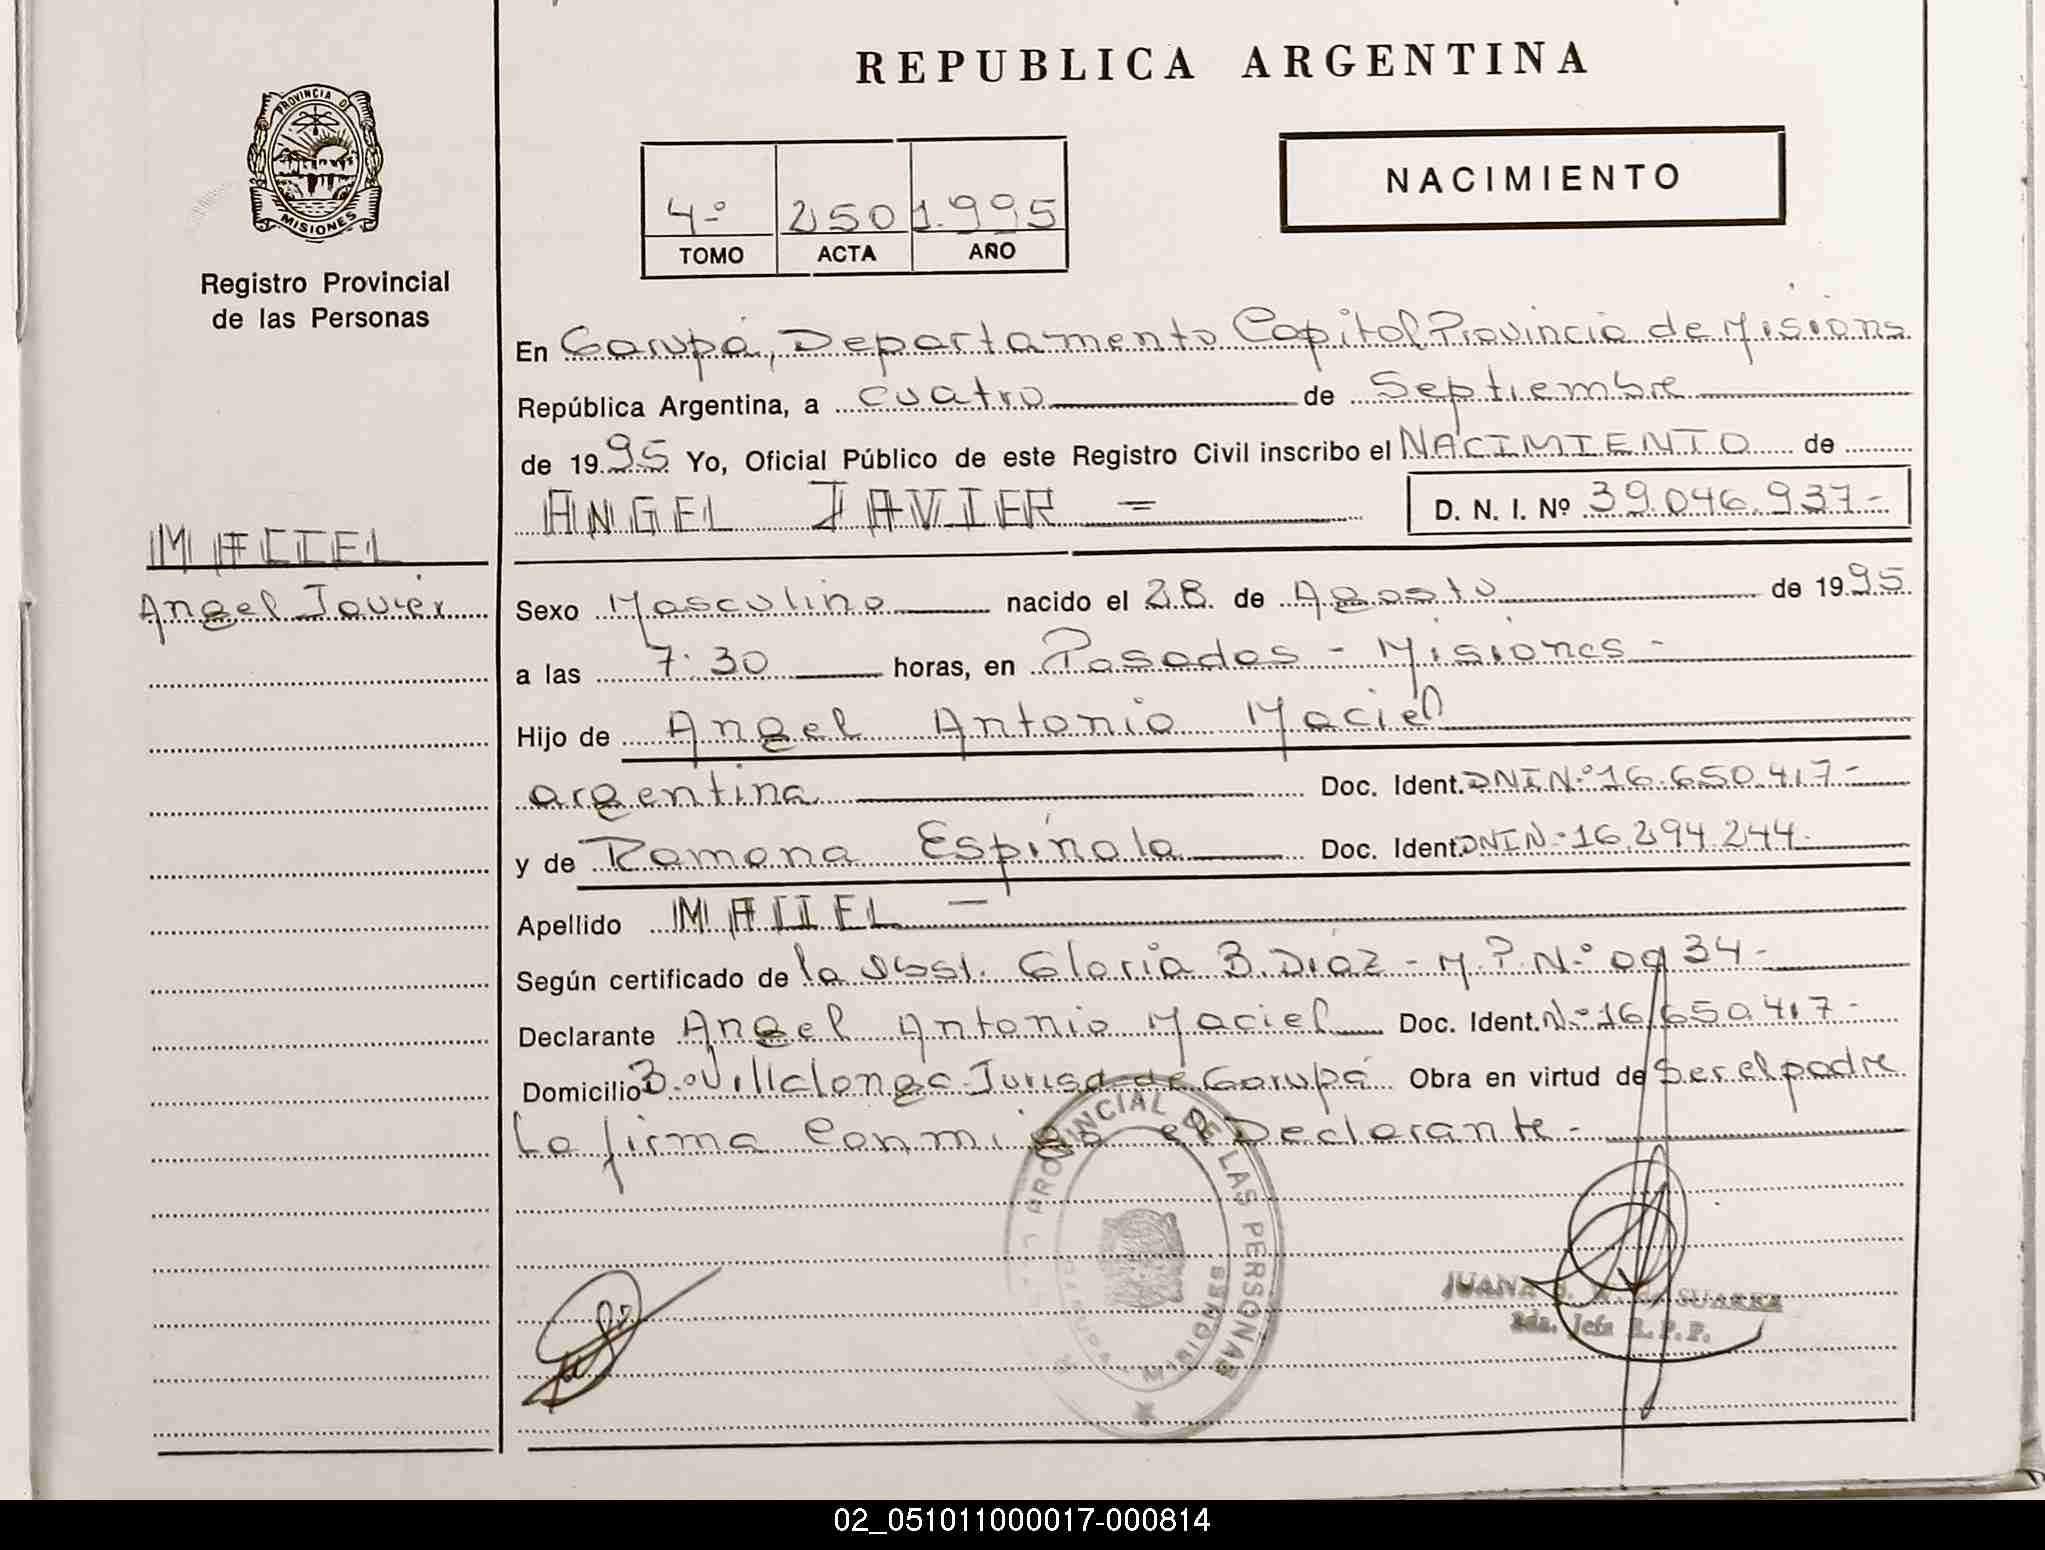 REPUBLICA ARGENTINA
PROVINCIA DE
MISIONES
Registro Provincial
de las Personas
4º 250 1.995
TOMO ACTA AÑO
NACIMIENTO
En Garupá, Departamento Capital Provincia de Misiones
República Argentina, a cuatro de Septiembre
de 1995 Yo, Oficial Público de este Registro Civil inscribo el NACIMIENTO de
ANGEL JAVIER = D. N. I. Nº 39.046.937-
MACIEL
Angel Javier
Sexo Masculino nacido el 28 de Agosto de 1995
a las 7:30 horas, en Posadas - Misiones -
Hijo de Angel Antonio Maciel
argentina Doc. Ident. DNI Nº 16.650.417-
y de Ramona Espínola Doc. Ident. DNI Nº 16.294.244-
Apellido MACIEL -
Según certificado de la Obst. Gloria B. Díaz - M.P. Nº 0934-
Declarante Angel Antonio Maciel Doc. Ident. Nº 16.650.417-
Domicilio Bº Villalonga Jurisd. de Garupá Obra en virtud de Ser el padre
Lo firma conmigo el Declarante.-
PROVINCIAL DE LAS PERSONAS
MISIONES
JUANA SUAREZ
2da. Jefa R.P.P.
02_051011000017-000814